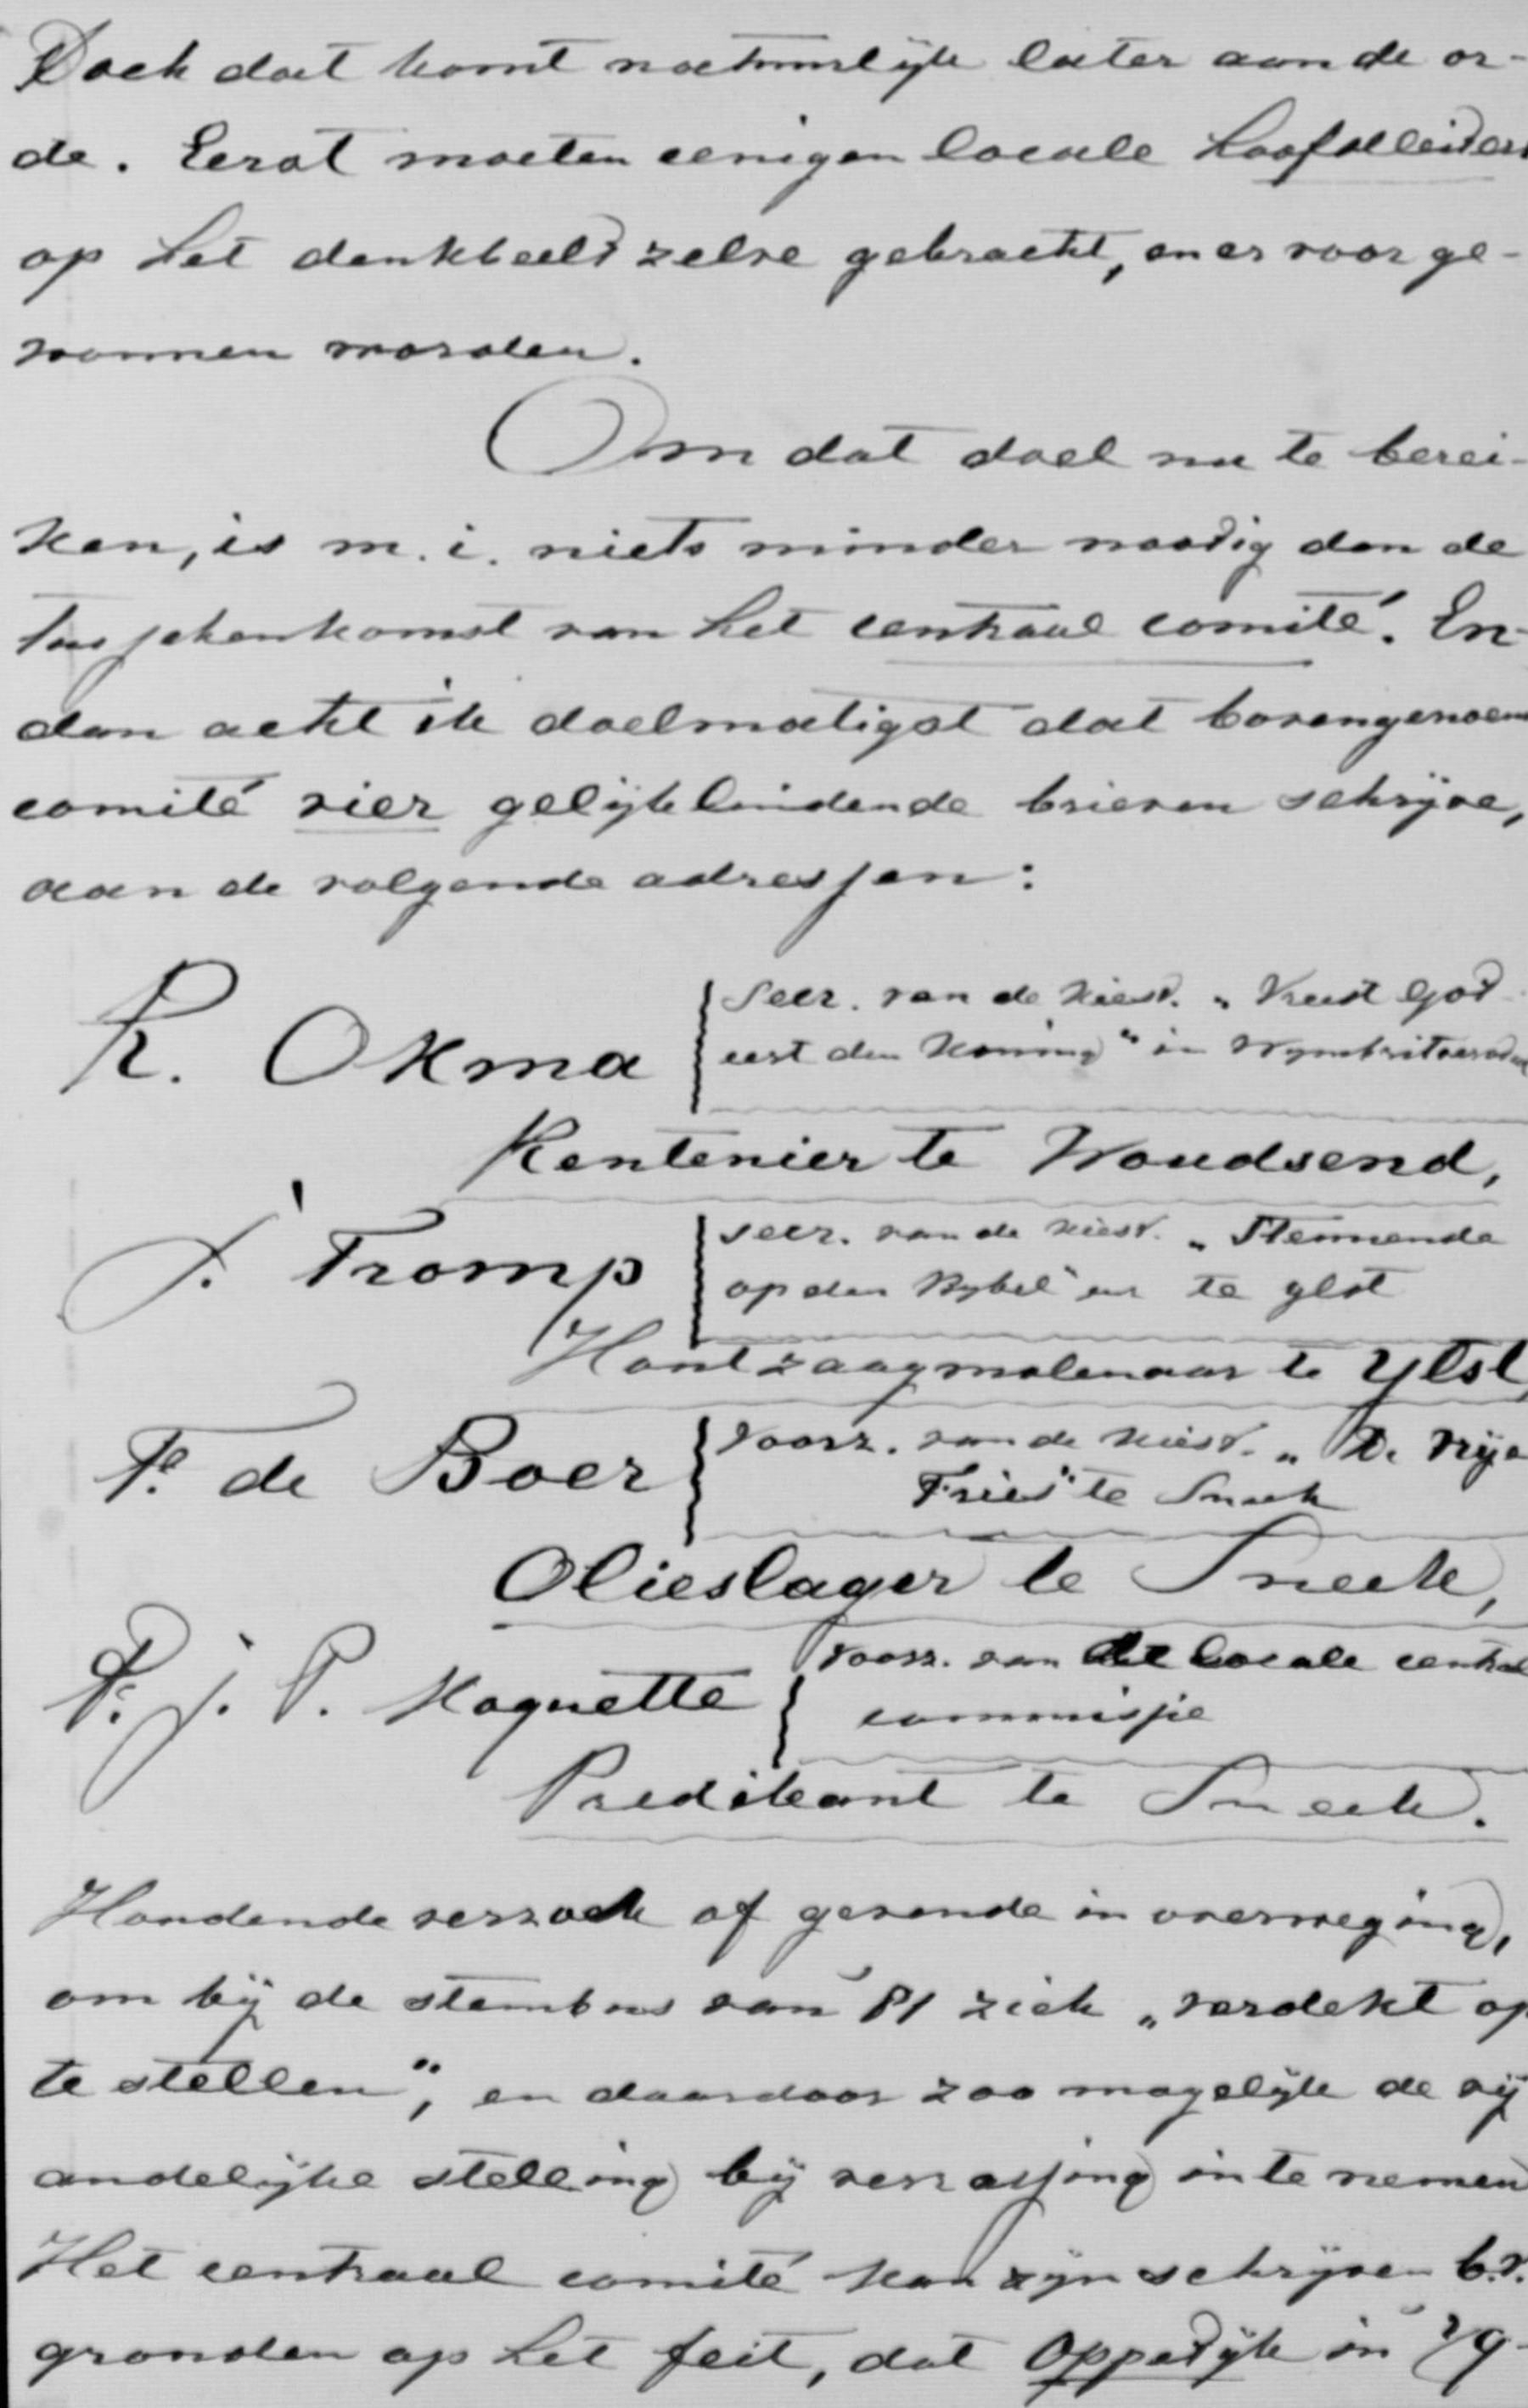 Doch dat komt natuurlijk later aan de or-
de. Eerst moeten eenigen locale hoofdleiders
op het denkbeeld zelve gebracht, en er voor ge-
wonnen worden.
Om dat doel nu te berei-
ken, is m. i. niets minder noodig dan de
tusschenkomst van het centraal comité. En
dan acht ik doelmatigst dat bovengenoemd
comité vier gelijkluidende brieven schrijve,
aan de volgende adressen:
K. Okma
Secr. van de kiesv. „Vreest God
eert den Koning" in Wymbritseradeel
Rentenier te Woudsend,
J. Tromp
secr. van de kiesv. „Steunende
op den Bybel" te Ylst
Houtzaagmolenaar te Ylst,
F. de Boer
Voorz. van de kiesv. „De Vrije
Fries" te Sneek
Olieslager te Sneek,
J. P. Moquette
Voorz. van de locale centrale
commissie
Predikant te Sneek.
Houdende verzoek of gevende in overweging,
om bij de stembus van 81 zich „verdekt op
te stellen", en daardoor zoo mogelijk de vij
andelijke stelling bij verrassing in te nemen
Het centraal comité kan zijn schrijven b.v.
gronden op het feit, dat Oppedijk in 79